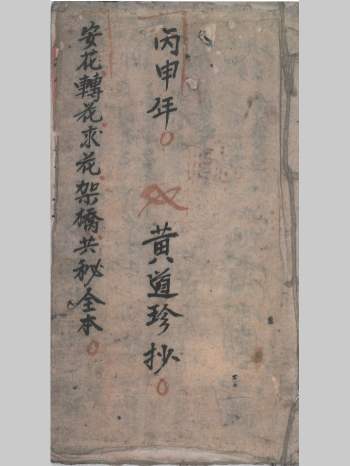 丙申年
黄道珍抄
安花轉花求花架橋共秘全本